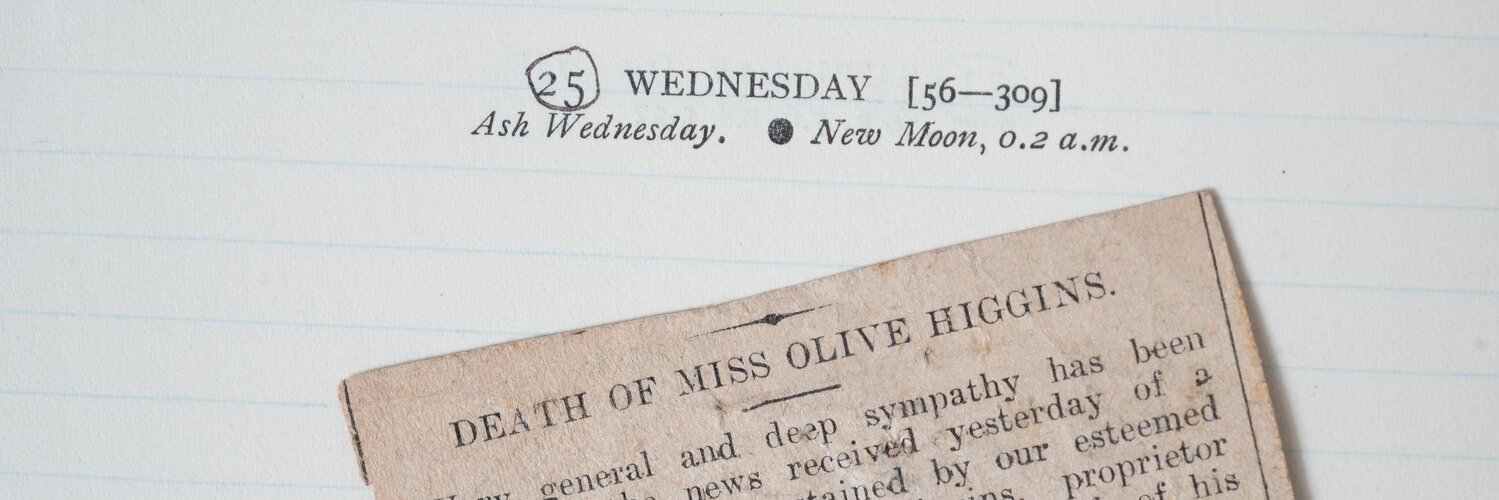 25 WEDNESDAY [56—309]
Ash Wednesday. ● New Moon, 0.2 a.m.
DEATH OF MISS OLIVE HIGGINS.
general and deep sympathy has been
news received yesterday of a
by our esteemed
proprietor
of his